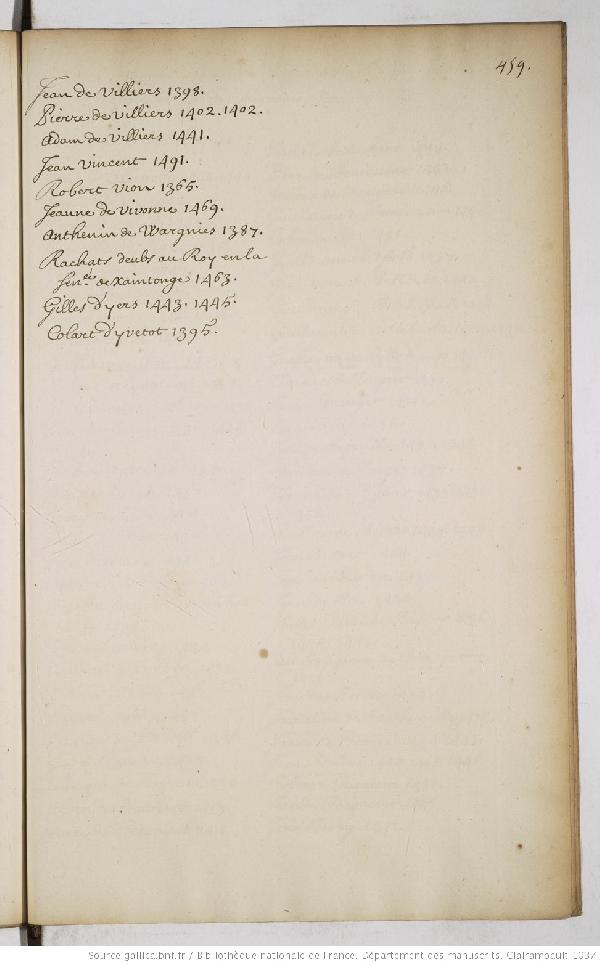 459.
Jean de Villiers 1398.
Pierre de Villiers 1402. 1402.
Adam de Villiers 1441.
Jean Vincent 1491.
Robert Vion 1365.
Jeanne de Vivonne 1469.
Anthenin de Wargnies 1387.
Rachats deubs au Roy en la
Sen.ée de Xaintonge 1463.
Gilles d'yers 1443. 1445.
Colart d'yvetot 1395.
Source gallica.bnf.fr / Bibliothèque nationale de France. Département des manuscrits. Clairambault 1037